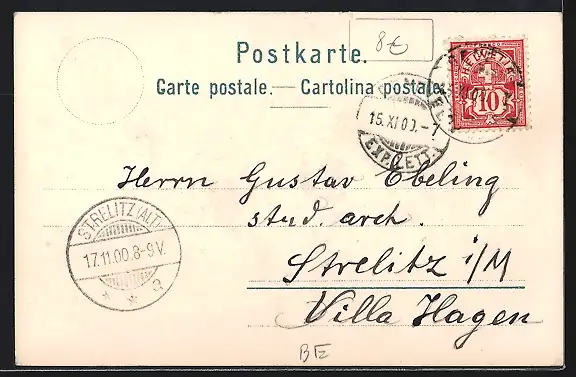 8€
Postkarte.
Carte postale. — Cartolina postale.
HELVETIA
10
15.XI.00.-7
EXP. LETT.
Herrn Gustav Ebeling
stud. arch.
Strelitz i/M
Villa Hagen
STRELITZ (ALT)
17.11.00.8-9V.
* * a
BE